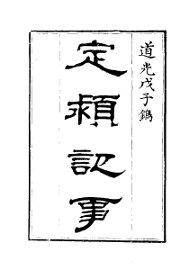 道光戊子鐫
定潁記事